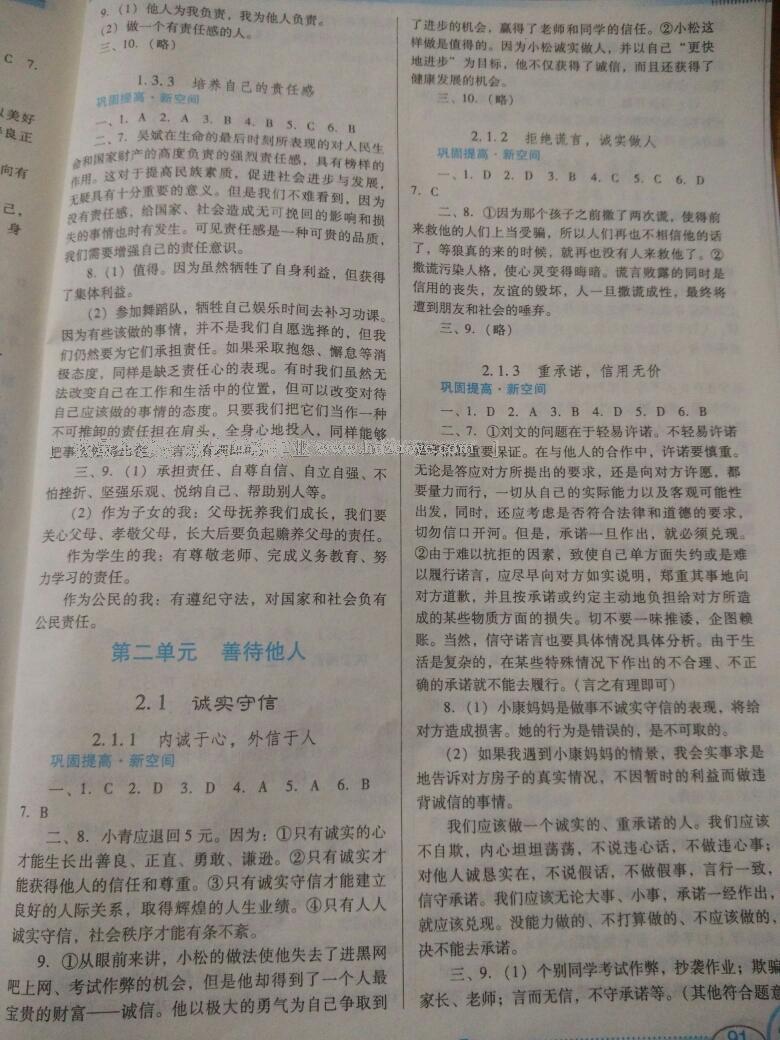 9.（1）他人为我负责，我为他人负责。
（2）做一个有责任感的人。
三、10.（略）
1.3.3 培养自己的责任感
巩固提高·新空间
一、1. A 2. A 3. B 4. B 5. C 6. B
二、7. 吴斌在生命的最后时刻所表现的对人民生
命和国家财产的高度负责的强烈责任感，具有榜样的
作用。这对于提高民族素质，促进社会进步与发展，
无疑具有十分重要的意义。但是我们不难看到，因为
没有责任感，给国家、社会造成无可挽回的影响和损
失的事情也时有发生。可见责任感是一种可贵的品质，
我们需要增强自己的责任意识。
8.（1）值得。因为虽然牺牲了自身利益，但获得
了集体利益。
（2）参加舞蹈队，牺牲自己娱乐时间去补习功课。
因为有些该做的事情，并不是我们自愿选择的，但我
们仍然要为它们承担责任。如果采取抱怨、懈怠等消
极态度，同样是缺乏责任心的表现。有时我们虽然无
法改变自己在工作和生活中的位置，但可以改变对待
自己应该做的事情的态度。只要我们把它们当作一种
不可推卸的责任担在肩头，全身心地投入，同样能够
把事
三、9.（1）承担责任、自尊自信、自立自强、不
怕挫折、坚强乐观、悦纳自己、帮助别人等。
（2）作为子女的我：父母抚养我们成长，我们要
关心父母、孝敬父母，长大后要负起赡养父母的责任。
作为学生的我：有尊敬老师、完成义务教育、努
力学习的责任。
作为公民的我：有遵纪守法，对国家和社会负有
公民责任。
第二单元 善待他人
2.1 诚实守信
2.1.1 内诚于心，外信于人
巩固提高·新空间
一、1. C 2. D 3. D 4. A 5. A 6. B
7. B
二、8. 小青应退回5元。因为：①只有诚实的心
才能生长出善良、正直、勇敢、谦逊。②只有诚实才
能获得他人的信任和尊重。③只有诚实守信才能建立
良好的人际关系，取得辉煌的人生业绩。④只有人人
诚实守信，社会秩序才能有条不紊。
9. ①从眼前来讲，小松的做法使他失去了进黑网
吧上网、考试作弊的机会，但是他却得到了一个人最
宝贵的财富——诚信。他以极大的勇气为自己争取到
了进步的机会，赢得了老师和同学的信任。②小松这
样做是值得的。因为小松诚实做人，并以自己“更快
地进步”为目标，他不仅获得了诚信，而且还获得了
健康发展的机会。
三、10.（略）
2.1.2 拒绝谎言，诚实做人
巩固提高·新空间
一、1. D 2. D 3. B 4. C 5. C 6. D
7. C
二、8. ①因为那个孩子之前撒了两次谎，使得前
来救他的人们上当受骗，所以人们再也不相信他的话
了，等狼真的来的时候，就再也没有人来救他了。②
撒谎污染人格，使心灵变得晦暗。谎言败露的同时是
信用的丧失，友谊的毁坏，人一旦撒谎成性，最终将
遭到朋友和社会的唾弃。
三、9.（略）
2.1.3 重承诺，信用无价
巩固提高·新空间
一、1. D 2. A 3. B 4. D 5. D 6. B
二、7. ①刘文的问题在于轻易许诺。不轻易许诺
重要保证。在与他人的合作中，许诺要慎重。
无论是答应对方所提出的要求，还是向对方许愿，都
要量力而行，一切从自己的实际能力以及客观可能性
出发，同时，还应考虑是否符合法律和道德的要求，
切勿信口开河。但是，承诺一旦作出，就必须兑现。
②由于难以抗拒的因素，致使自己单方面失约或是难
以履行诺言，应尽早向对方如实说明，郑重其事地向
对方道歉，并且按承诺或约定主动地负担给对方所造
成的某些物质方面的损失。切不要一味推诿，企图赖
账。当然，信守诺言也要具体情况具体分析。由于生
活是复杂的，在某些特殊情况下作出的不合理、不正
确的承诺就不能去履行。（言之有理即可）
8.（1）小康妈妈是做事不诚实守信的表现，将给
对方造成损害。她的行为是错误的，是不可取的。
（2）如果我遇到小康妈妈的情景，我会实事求是
地告诉对方房子的真实情况，不因暂时的利益而做违
背诚信的事情。
我们应该做一个诚实的、重承诺的人。我们应该
不自欺，内心坦坦荡荡，不说违心话，不做违心事；
对他人诚恳实在，不说假话，不做假事，言行一致，
信守承诺。我们应该无论大事、小事，承诺一经作出，
就应该兑现。没能力做的、不打算做的、不应该做的，
决不能去承诺。
三、9.（1）个别同学考试作弊，抄袭作业；欺骗
家长、老师；言而无信，不守承诺等。（其他符合题意
91